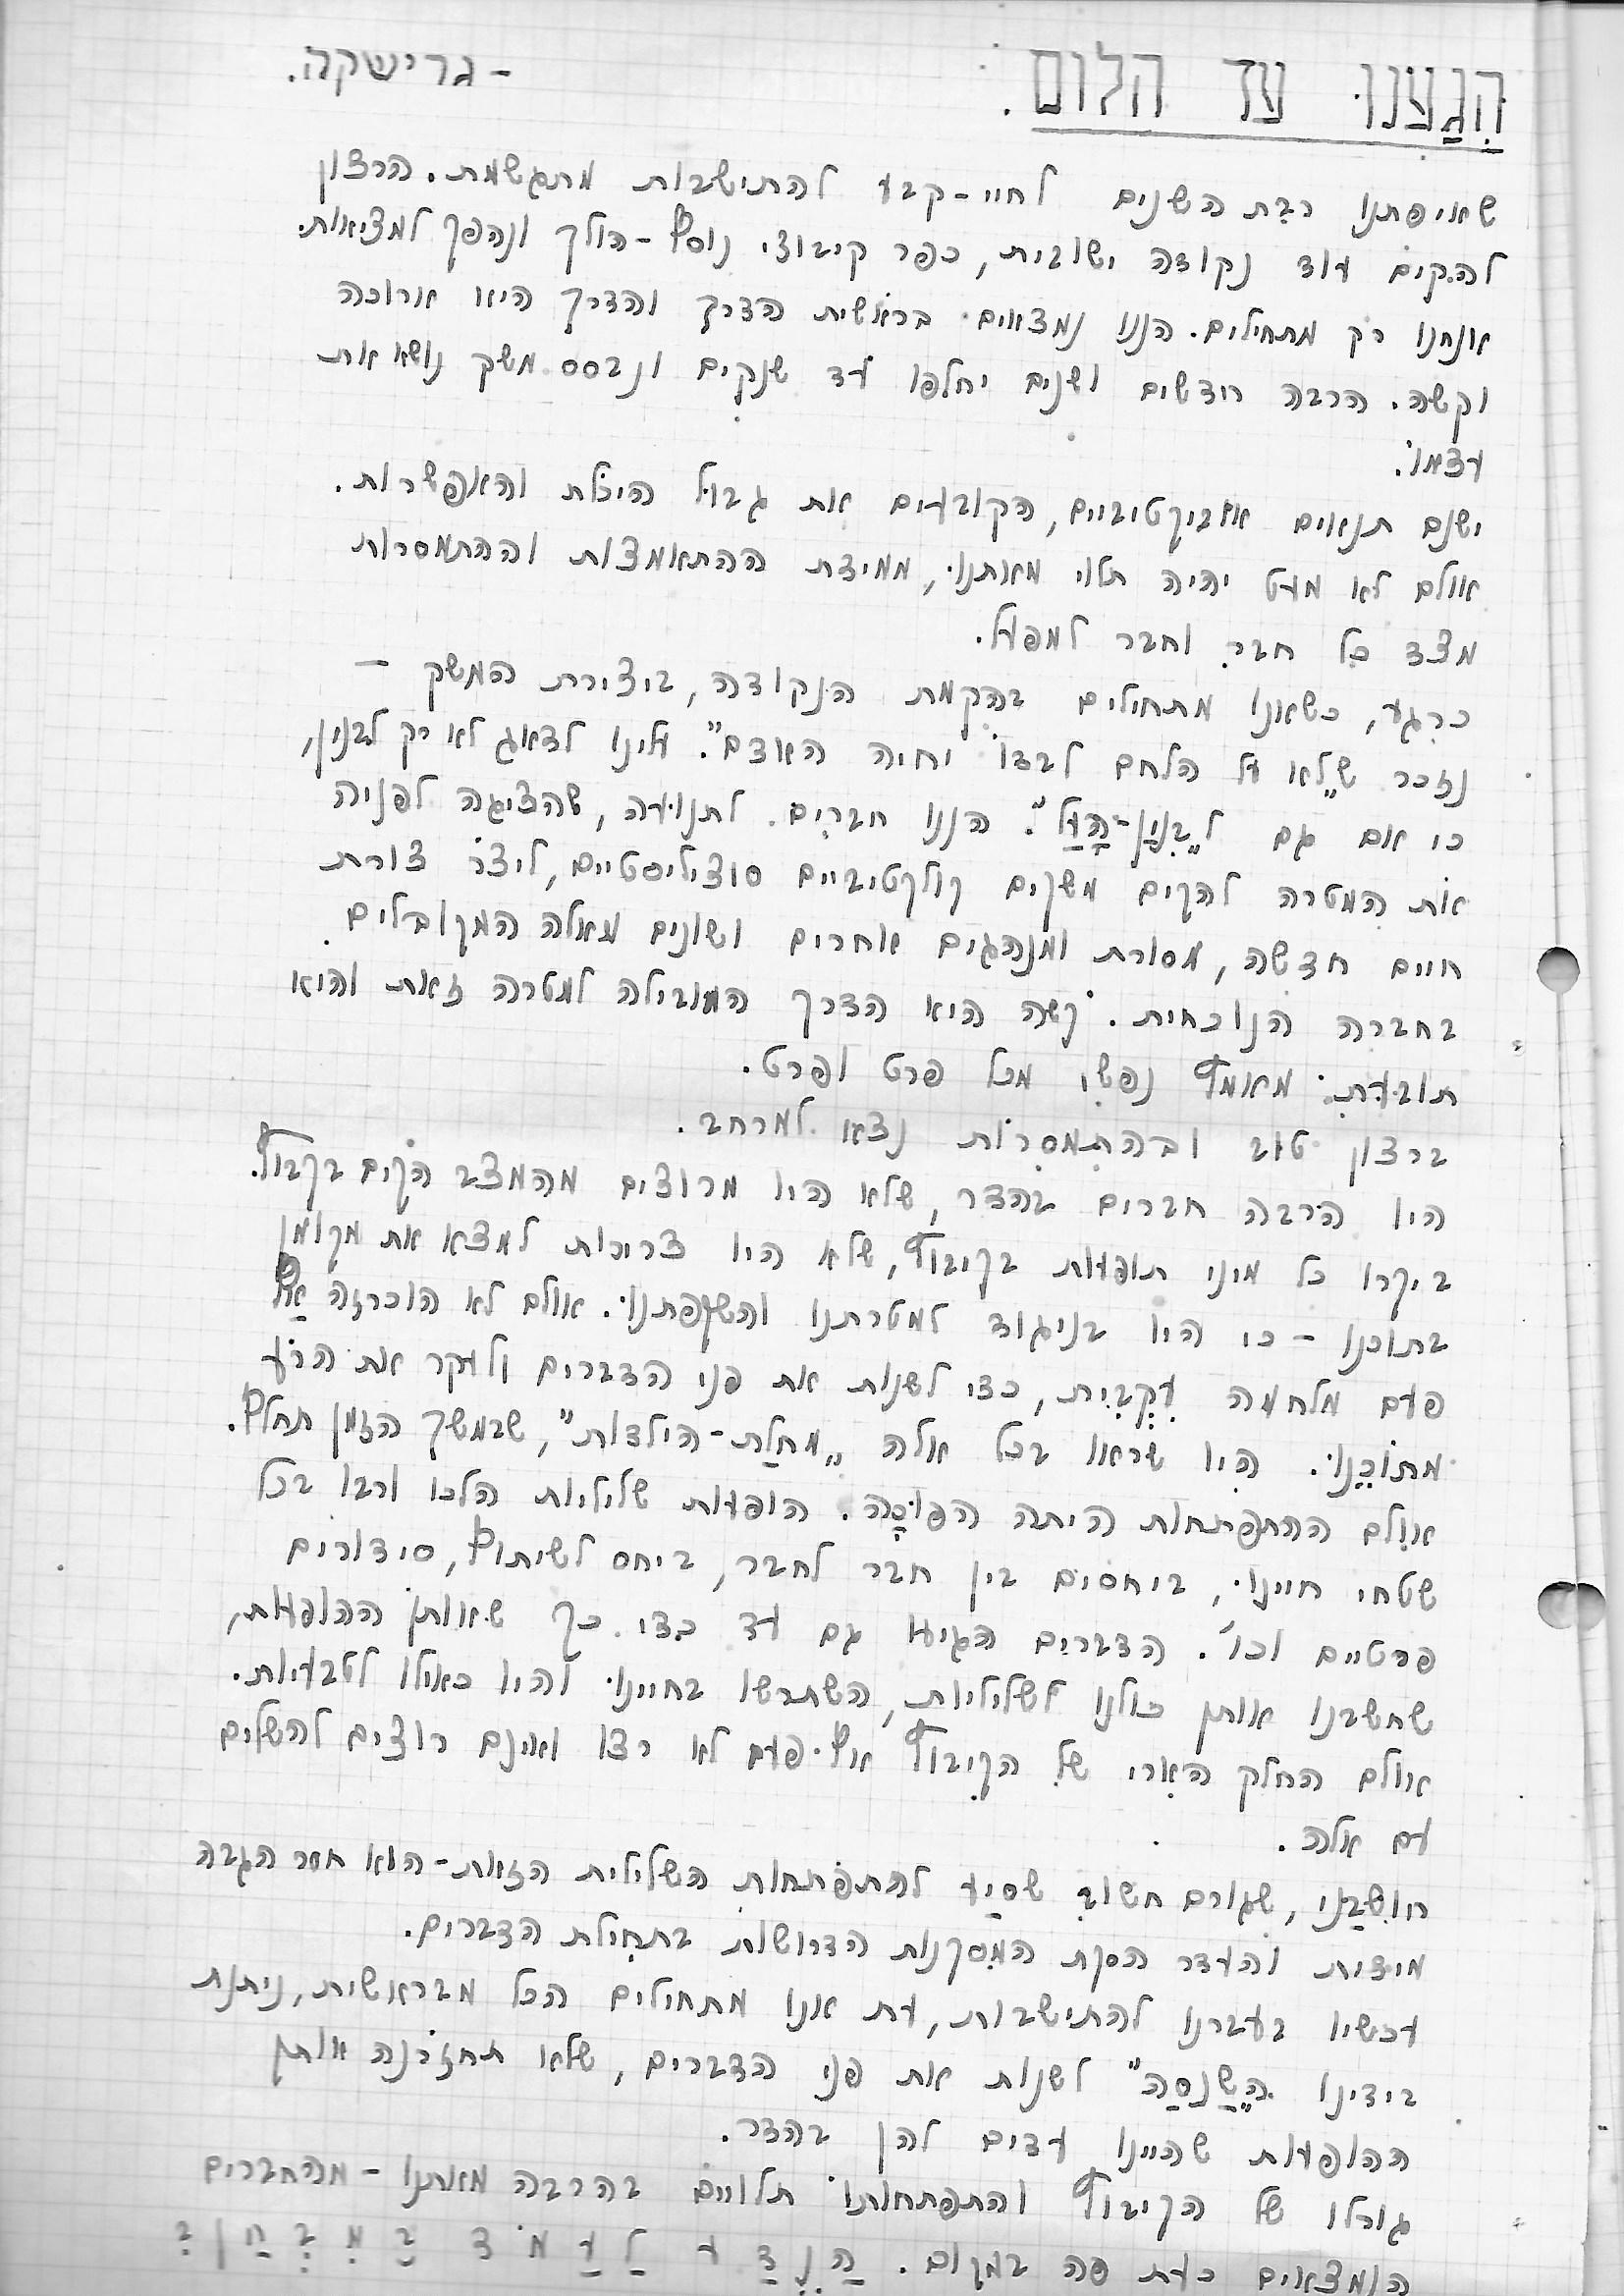 הִגַּעְנוּ עַד הלום. - גרישקה.
שאיפתנו רבת השנים לחיי-קבע להתישבות מתגשמת. הרצון
להקים עוד נקודה ישובית, כפר קיבוצי נוסף - הולך ונהפך למציאות.
אנחנו רק מתחילים. הננו נמצאים בראשית הדרך והדרך היא ארוכה
וקשה. הרבה חודשים ושנים יחלפו עד שנקים ונבסס משק נושא את
עצמו.
ישנם תנאים אוביקטיביים, הקובעים את גבול היכלת והאפשרות.
אולם לא מעט יהיה תלוי מאתנו, ממידת ההתאמצות וההתמסרות
מצד כל חבר וחבר למפעל.
כרגע, כשאנו מתחילים בהקמת הנקודה, ביצירת המשק —
נזכר ש„לא על הלחם לבדו יחיה האדם". עלינו לדאוג לא רק לבנין,
כי אם גם ל„בִּנְיַן-הָעַל". הננו חברים לתנועה, שהציגה לפניה
את המטרה להקים משקים קולקטיביים סוציליסטיים, ליצר צורת
חיים חדשה, מסורת ומנהגים אחרים ושונים מאלה המקובלים
בחברה הנוכחית. קשה היא הדרך המובילה למטרה זאת והיא
תובעת מאמץ נפשי מכל פרט ופרט.
ברצון טוב ובהתמסרות נצא למרחב.
היו הרבה חברים בהדר, שלא היו מרוצים מהמצב הקים בקבוץ.
ביקרו כל מיני תופעות בקיבוץ, שלא היו צריכות למצא את מקומן
בתוכנו - כי היו בניגוד למטרתנו והשקפתנו. אולם לא הוכרזה אַף
פעם מלחמה עִקְבִית, כדי לשנות את פני הדברים ולעקר את הרע
מתוכֵנו. היו שראו בכל אלה „מחלַת-הילדות", שבמשך הזמן תחלף.
אולם ההתפתחות היתה הפוכָה. הופעות שליליות הלכו ורבו בכל
שטחי חיינו, ביחסים בין חבר לחבר, ביחס לשיתוף, סידורים
פרטיים וכו'. הדברים הגיעו גם עד כדי כך שאותן ההופעות,
שחשבנו אותן כולנו לשליליות, השתרשו בחיינו והיו כאילו לטבעיות.
אולם החלק הארי של הקיבוץ אף פעם לא רצו ואינם רוצים להשלים
עם אלה.
חושבַני, שגורם חשוב שסיַע להתפתחות השלילית הזאת - הוא חסר הגבה
מידית והעדר הסקת המסקנות הדרושות בתחילת הדברים.
עכשיו בעברנו להתישבות, עת אנו מתחילים הכל מבראשית, ניתנת
בידינו ה„שַנסַה" לשנות את פני הדברים, שלא תחזרנה אותן
ההופעות שהיינו עדים להן בהדר.
גורלו של הקיבוץ והתפתחותו תלויים בהרבה מאתנו - מהחברים
הנמצאים כעת פה במקום. הֲנֵדַע לַעֲמֹד בַּמִּבְחָן?